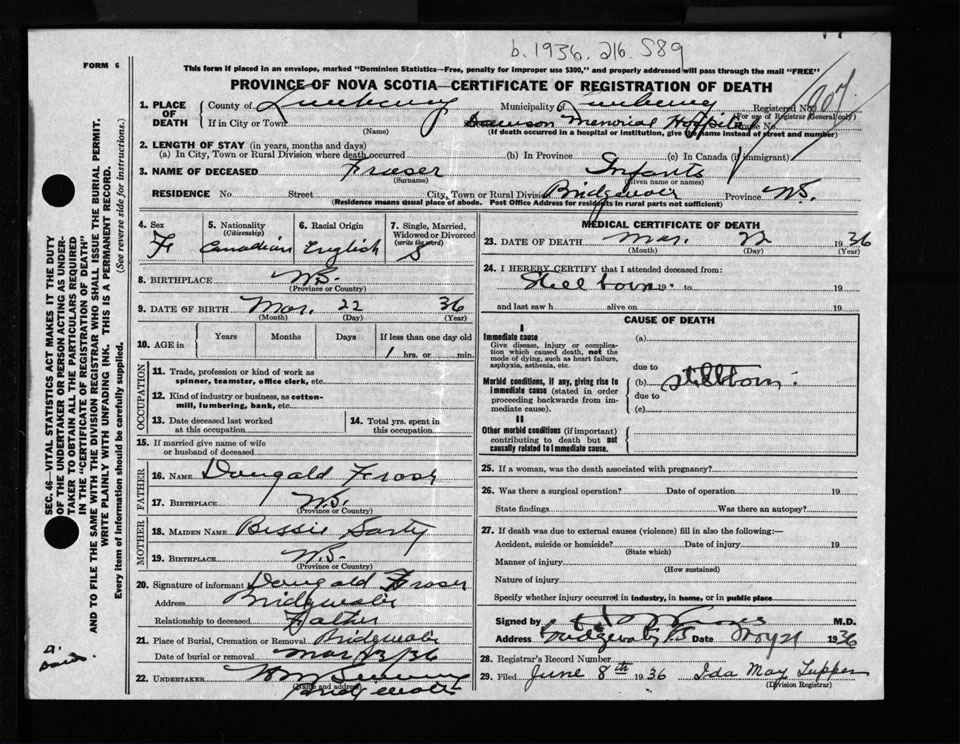 b. 1936. 216. 589
FORM 6
This form if placed in an envelope, marked "Dominion Statistics—Free, penalty for improper use $300," and properly addressed will pass through the mail "FREE"
PROVINCE OF NOVA SCOTIA—CERTIFICATE OF REGISTRATION OF DEATH
1. PLACE OF DEATH County of Lunenburg Municipality of Lunenburg Registered No.
(For use of Registrar General only)
If in City or Town Dawson Memorial Hospital House No.
(Name) (If death occurred in a hospital or institution, give the name instead of street and number)
2. LENGTH OF STAY (in years, months and days)
(a) In City, Town or Rural Division where death occurred (b) In Province (c) In Canada (if immigrant)
3. NAME OF DECEASED Fraser Infants
(Surname) (Given name or names)
RESIDENCE No. Street City, Town or Rural Division Bridgewater Province N.S.
(Residence means usual place of abode. Post Office Address for residents in rural parts not sufficient)
4. Sex F
5. Nationality (Citizenship) Canadian
6. Racial Origin English
7. Single, Married, Widowed or Divorced (write the word) S
8. BIRTHPLACE N.S.
(Province or Country)
9. DATE OF BIRTH Mar. 22 36
(Month) (Day) (Year)
10. AGE in Years Months Days If less than one day old
1 hrs. or min.
OCCUPATION
11. Trade, profession or kind of work as spinner, teamster, office clerk, etc.
12. Kind of industry or business, as cotton-mill, lumbering, bank, etc.
13. Date deceased last worked at this occupation
14. Total yrs. spent in this occupation
15. If married give name of wife or husband of deceased
FATHER
16. NAME Dougald Fraser
17. BIRTHPLACE N.S.
(Province or Country)
MOTHER
18. MAIDEN NAME Bessie Sarty
19. BIRTHPLACE N.S.
(Province or Country)
20. Signature of informant Dougald Fraser
Address Bridgewater
Relationship to deceased Father
21. Place of Burial, Cremation or Removal Bridgewater
Date of burial or removal Mar 23/36
22. UNDERTAKER
(Name and address) Bridgewater
MEDICAL CERTIFICATE OF DEATH
23. DATE OF DEATH Mar. 22 1936
(Month) (Day) (Year)
24. I HEREBY CERTIFY that I attended deceased from:
Still born 19 to 19
and last saw h alive on 19
CAUSE OF DEATH
I
Immediate cause
Give disease, injury or complication which caused death, not the mode of dying, such as heart failure, asphyxia, asthenia, etc.
(a)
due to
Morbid conditions, if any, giving rise to immediate cause (stated in order proceeding backwards from immediate cause).
(b) stillborn.
due to
(c)
II
Other morbid conditions (if important) contributing to death but not causally related to immediate cause.
25. If a woman, was the death associated with pregnancy?
26. Was there a surgical operation? Date of operation 19
State findings Was there an autopsy?
27. If death was due to external causes (violence) fill in also the following:—
Accident, suicide or homicide? Date of injury 19
(State which)
Manner of injury
(How sustained)
Nature of injury
Specify whether injury occurred in industry, in home, or in public place
Signed by M.D.
Address Bridgewater, N.S Date 1936
28. Registrar's Record Number
29. Filed June 8th 1936 Ida May Tupper
(Division Registrar)
SEC. 46—VITAL STATISTICS ACT MAKES IT THE DUTY
OF THE UNDERTAKER OR PERSON ACTING AS UNDER-
TAKER TO OBTAIN ALL THE PARTICULARS REQUIRED
IN THE "CERTIFICATE OF REGISTRATION OF DEATH"
AND TO FILE THE SAME WITH THE DIVISION REGISTRAR WHO SHALL ISSUE THE BURIAL PERMIT.
WRITE PLAINLY WITH UNFADING INK. THIS IS A PERMANENT RECORD.
Every item of Information should be carefully supplied. (See reverse side for instructions.)